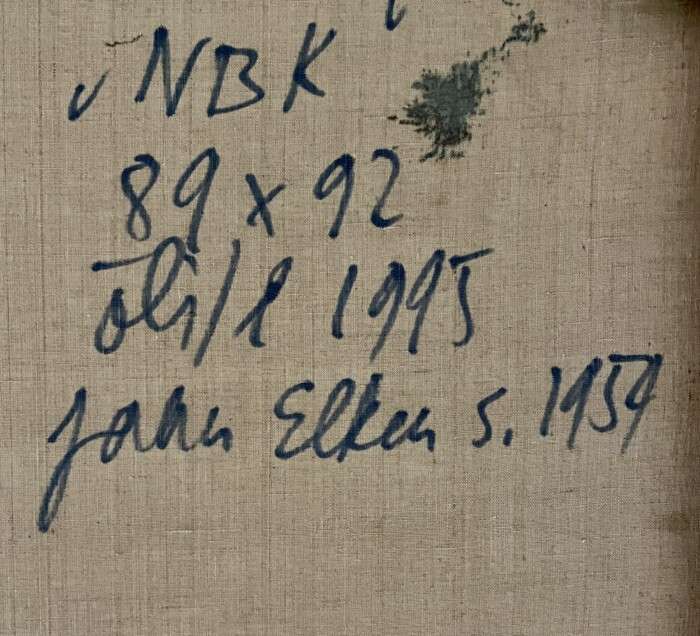 NBK
89 x 92
õli/l 1995
Jaan Elken s. 1954